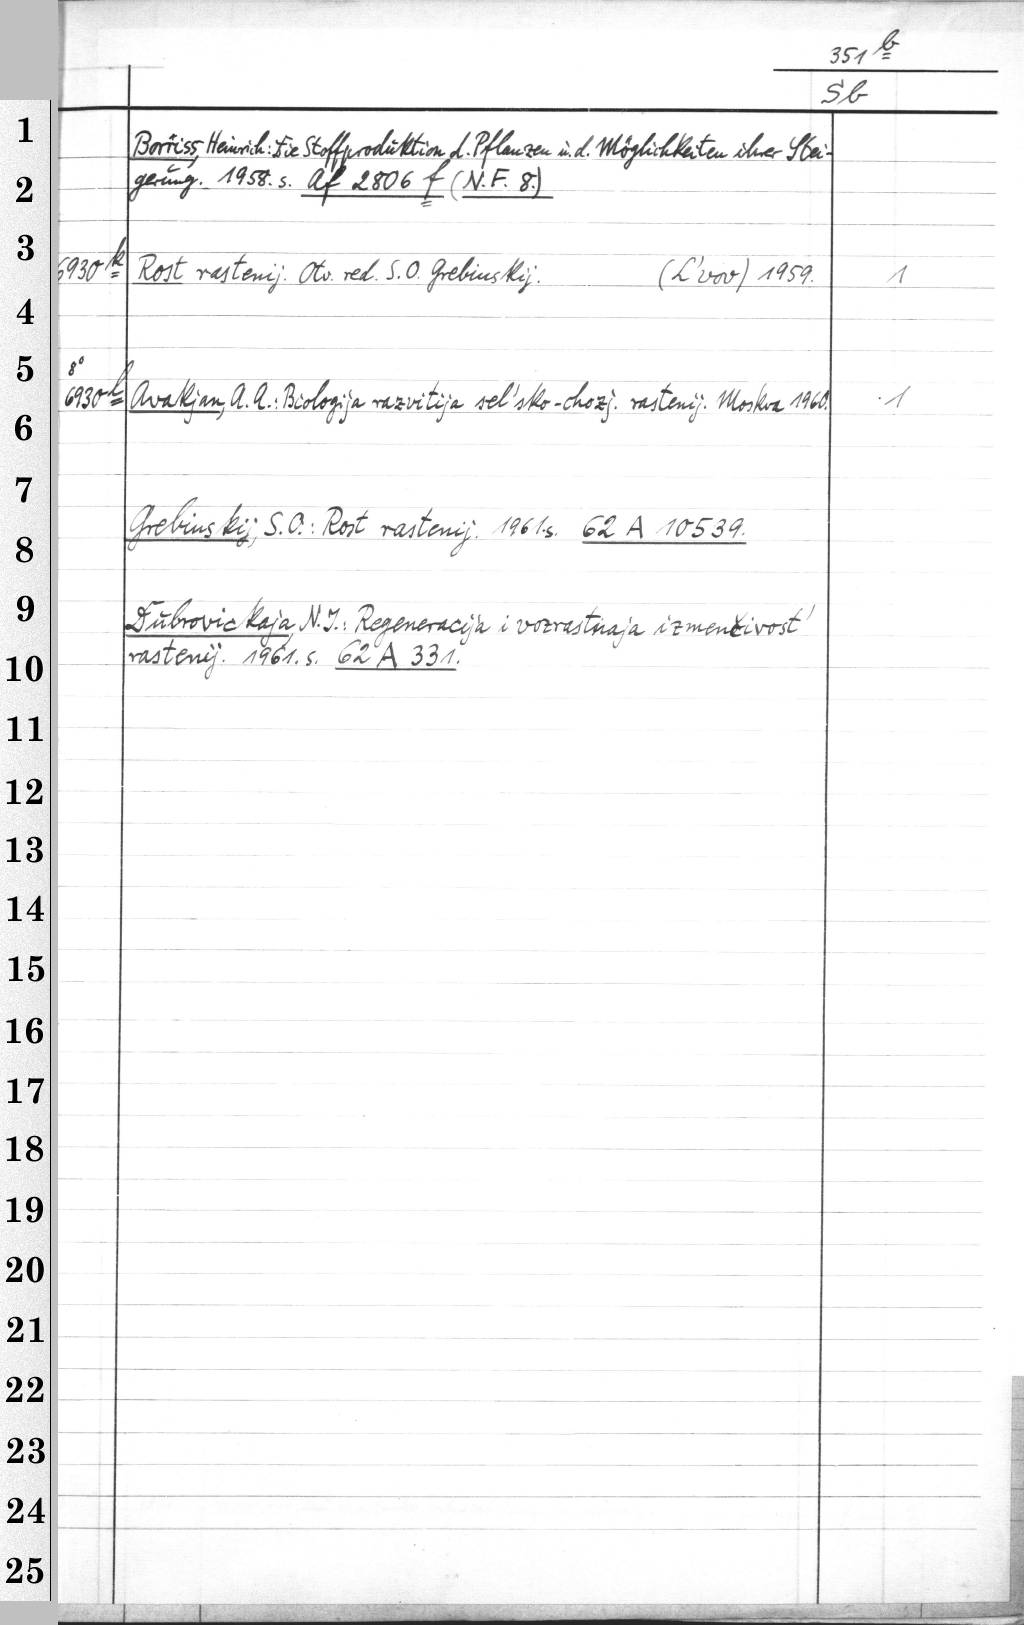 351 b
Sb
1
Borriss, Heinrich: Die Stoffproduktion d. Pflanzen u. d. Möglichkeiten ihrer Stei-
2
gerung. 1958. s. Af 2806 f (N.F. 8.)
3
6930 k Rost rastenij. Otv. red. S. O. Grebinskij. (L'vov) 1959. 1
4
5
8°
6930 l Avakjan, A. A.: Biologija razvitija sel'sko-chozj. rastenij. Moskva 1960. 1
6
7
Grebinskij, S. O.: Rost rastenij. 1961. s. 62 A 10539.
8
9
Dubrovickaja, N. I.: Regeneracija i vozrastnaja izmenčivost'
rastenij. 1961. s. 62 A 331.
10
11
12
13
14
15
16
17
18
19
20
21
22
23
24
25